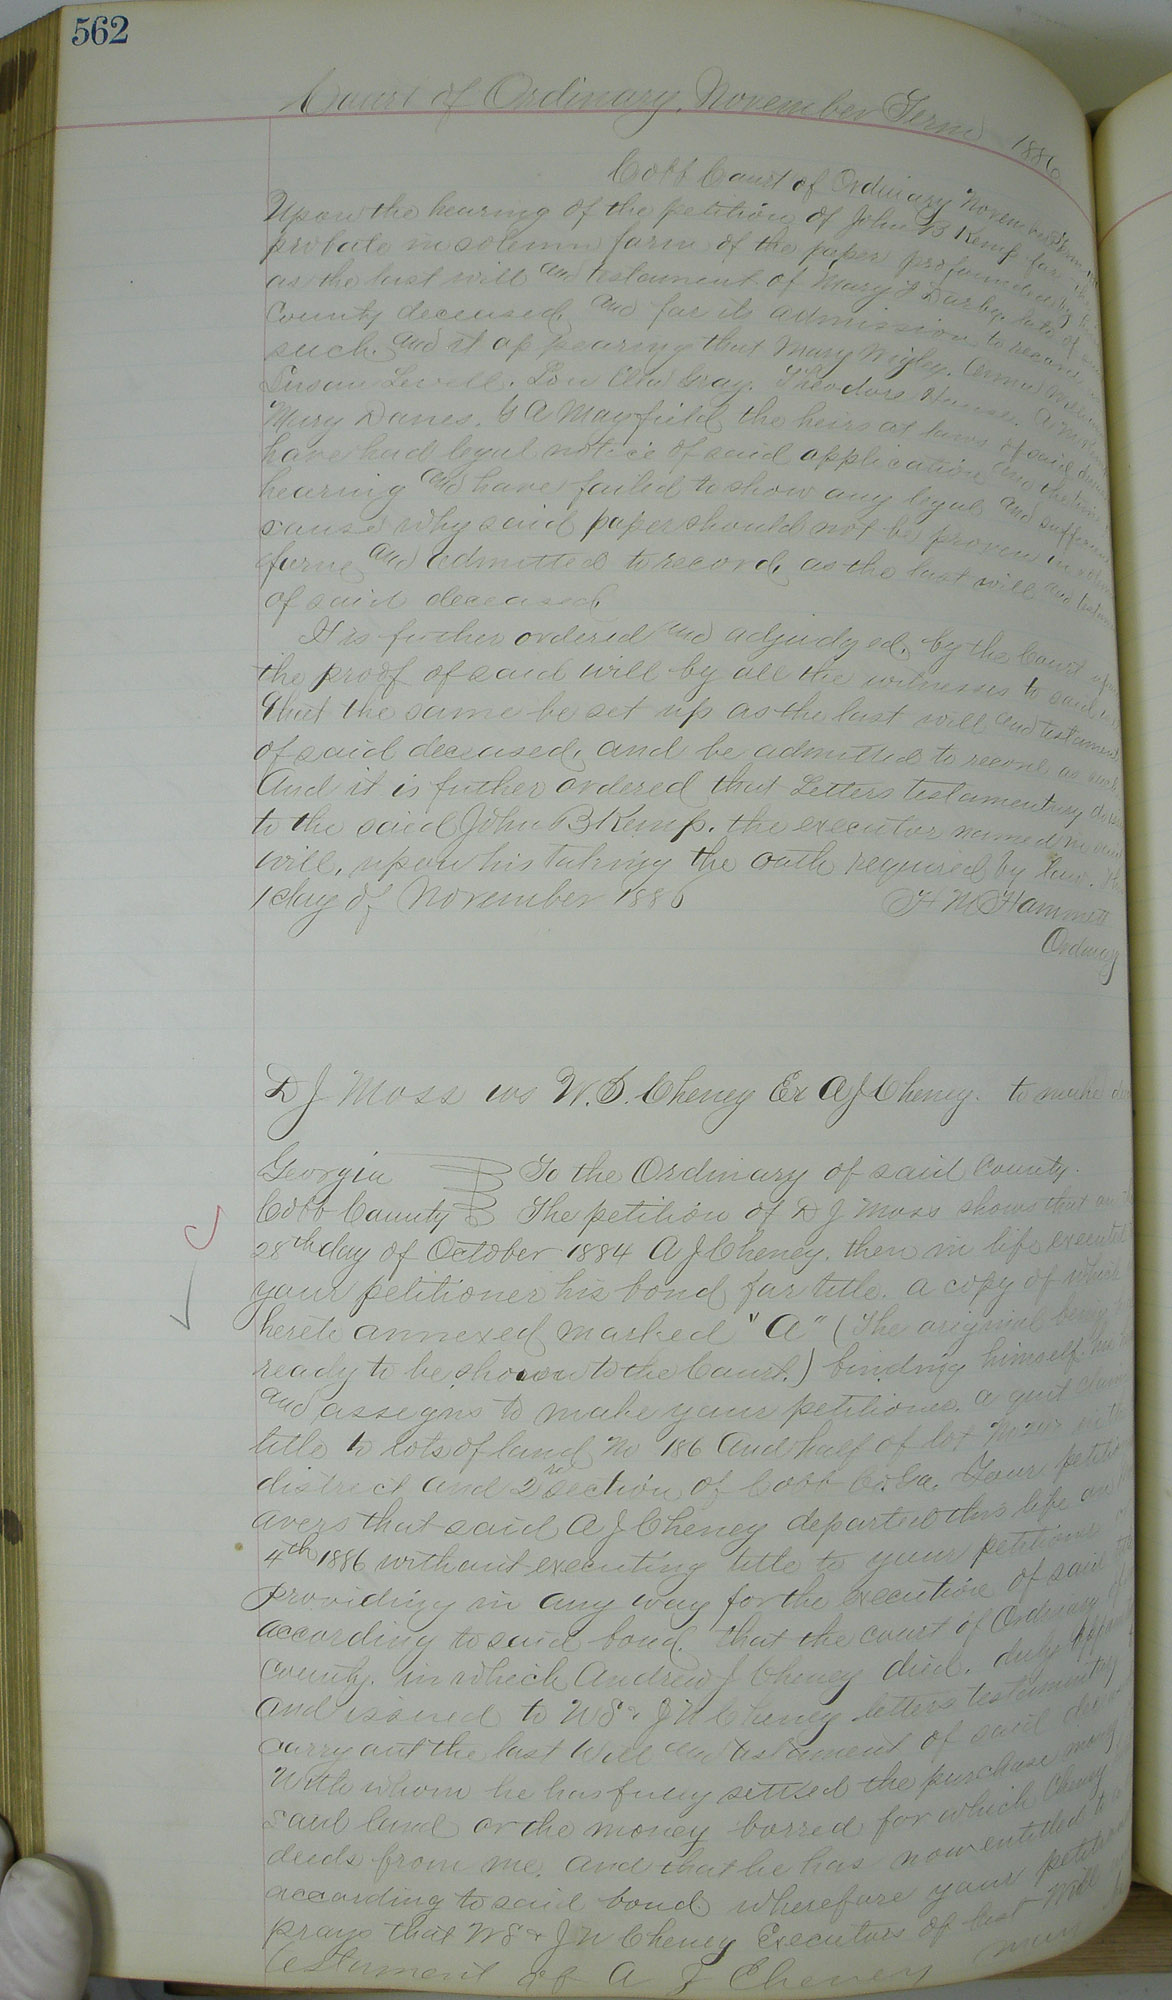 562
Court of Ordinary, November Term 1886
Cobb Court of Ordinary November Term
Upon the hearing of the petition of John B Kemp for the
probate in solemn form of the paper propounded by
as the last will and testament of Mary Darby late of
County deceased, and for its admission to record as
such. and it appearing that Mary Anna
Susan Lou Gray. Theodore
Mary G A Mayfield the heirs at laws of said
have had legal notice of said application and the
hearing and have failed to show any legal and sufficient
cause why said paper should not be proven in solemn
form, and admitted to record, as the last will and
of said deceased.
It is futher ordered and adjudged, by the Court
the proof of said will by all the witnesses to said
That the same be set up as the last will and testament
of said deceased, and be admitted to record as such.
And it is futher ordered that Letters testamentary do
to the said John B Kemp, the executor named in
will, upon his taking the oath required by law.
1 day of November 1886 H M Hammett
Ordinary
D J Moss vs W. S. Cheney Ex A J Cheney. to make
Georgia To the Ordinary of said County.
Cobb County The petition of D J Moss shows that on
28th day of October 1884 A J Cheney, then in life executed
your petitioner his bond for title, a copy of which
hereto annexed marked "A" (The original being
ready to be shown to the Court.) binding himself
and assigns to make your petitioner a quit claim
title to lots of land, No 186 And half of lot No in
district and 2nd section of Cobb Co. Ga. Your
avers that said A J Cheney departed this life on
4th 1886 without executing title to your petitioner
providing in any way for the execution of said
according to said bond, that the court of Ordinary of
County. in which Andrew J Cheney died, duly
and issued to W S & J N Cheney letters testamentary
carry out the last Will and testament of said
With whom he has fully settled the purchase money
said land or the money borred for which Cheney
deeds from me, and that he has now entitled to
according to said bond wherefore your
prays that W S & J N Cheney Executors of last Will
testament of A J Cheney